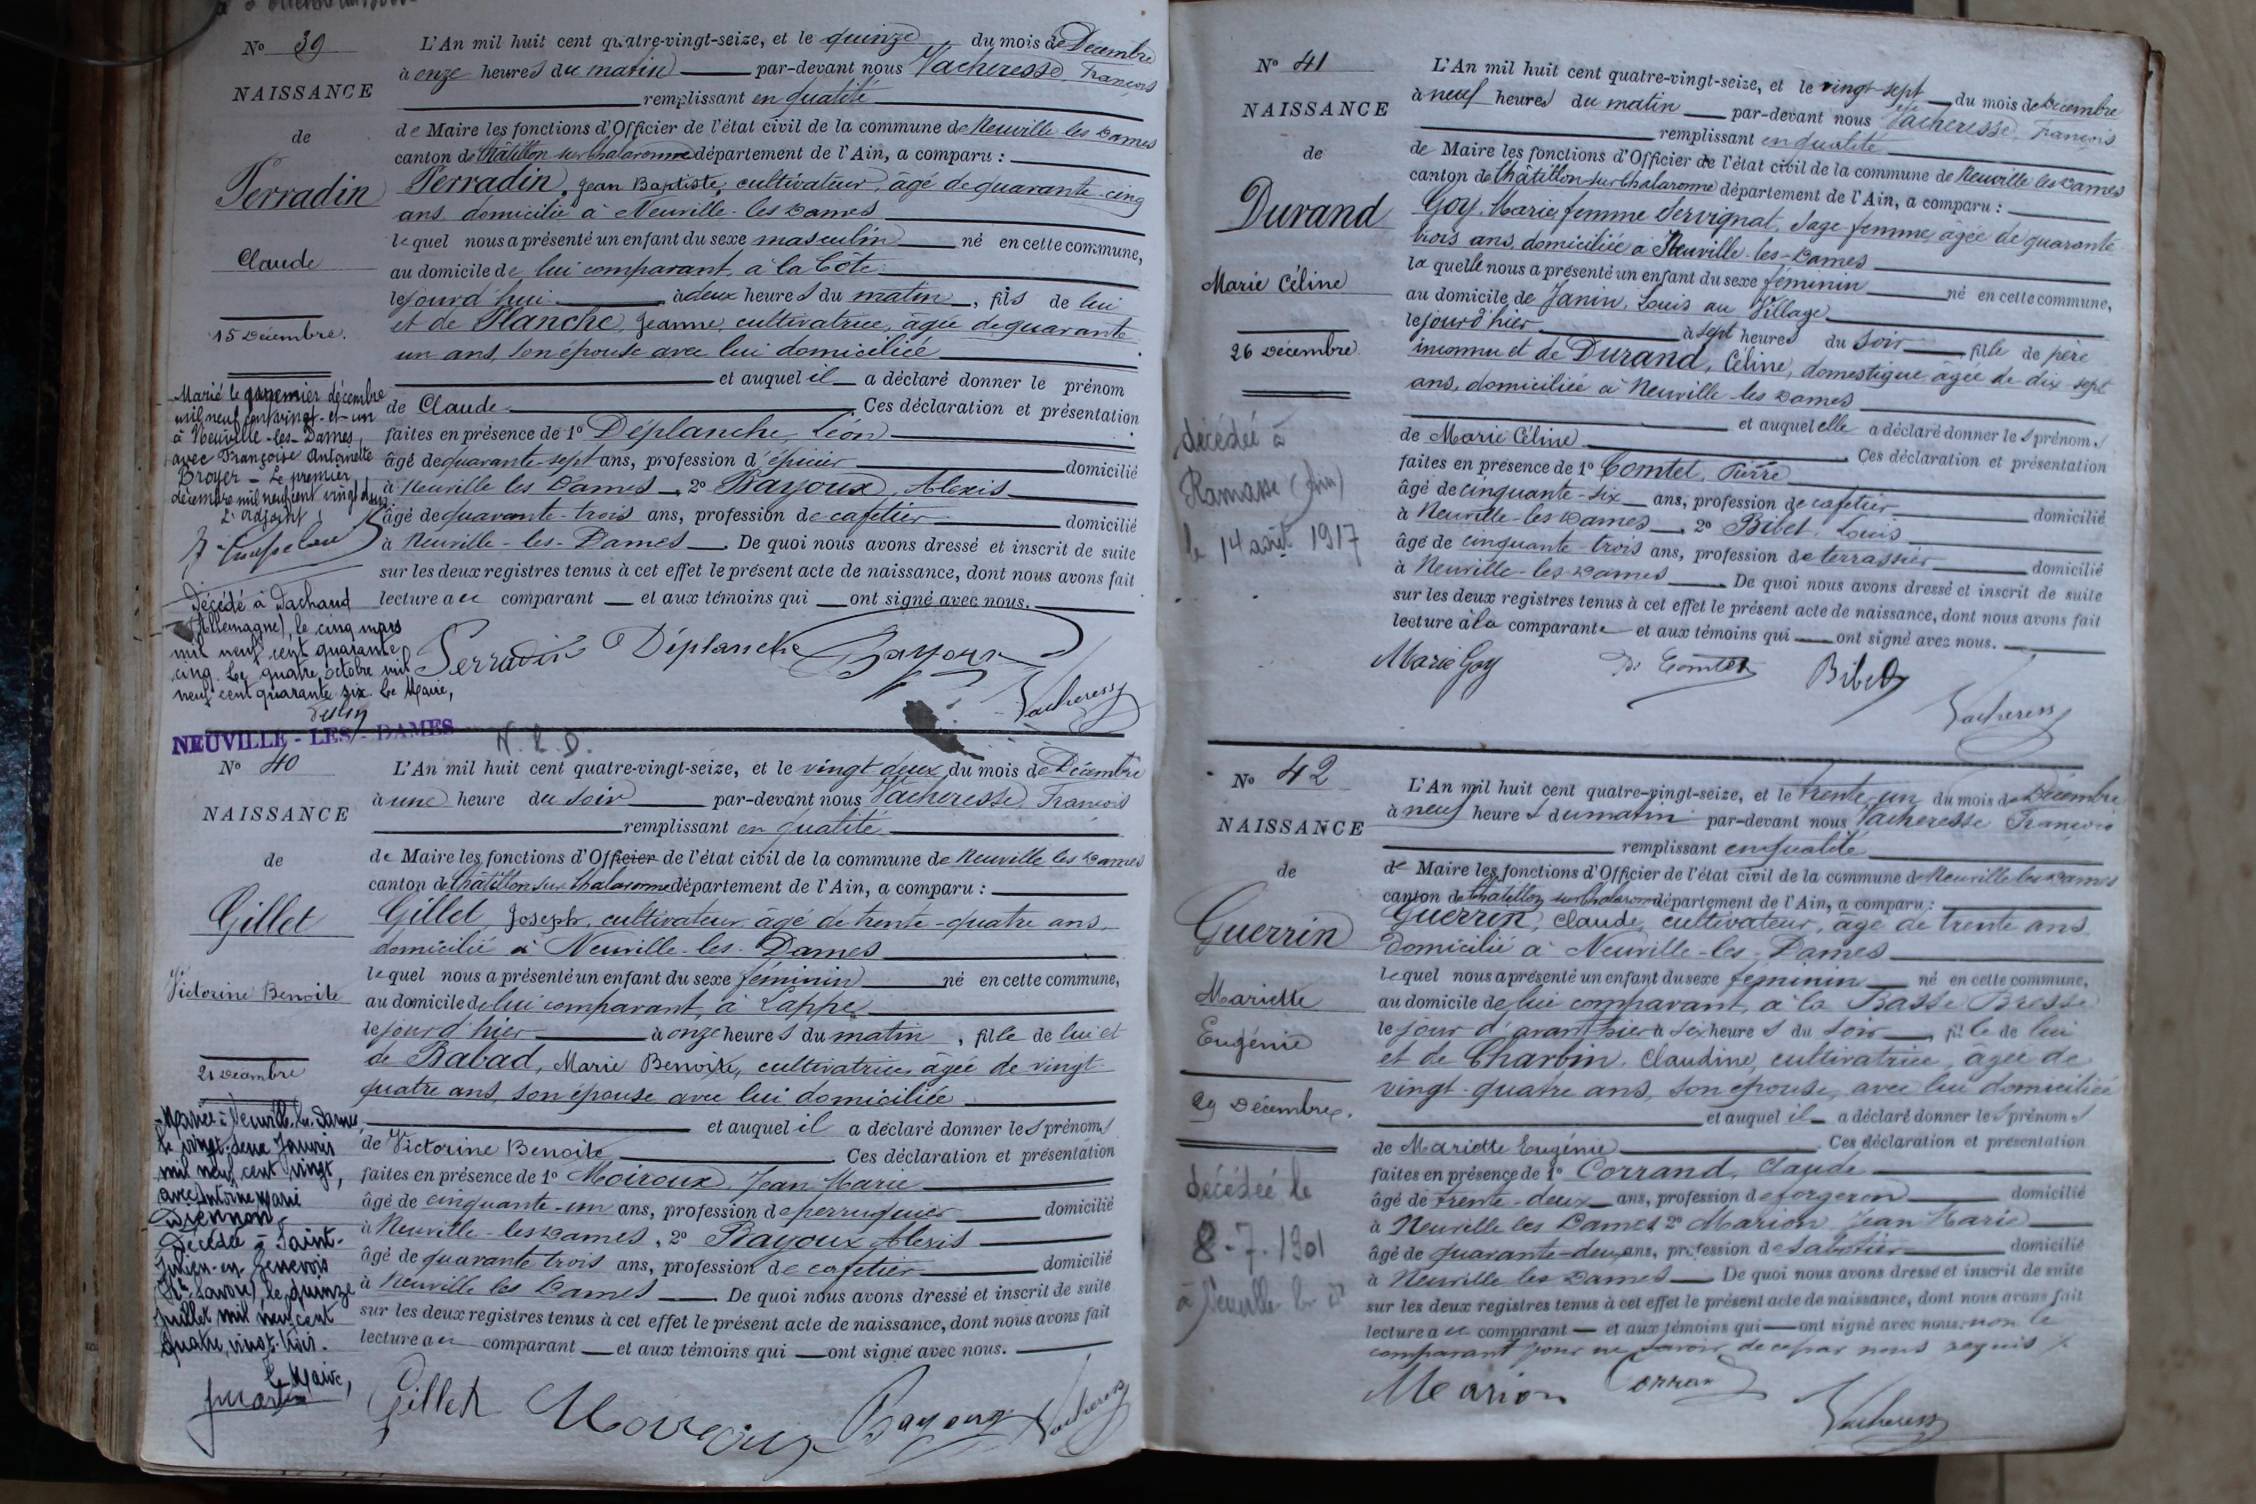 N° 39
NAISSANCE
de
Terradin
Claude
15 Décembre.
Marié le premier décembre
mil neuf cent vingt-et-un
à Neuville-les-Dames,
avec Françoise Antoinette
Broyer - Le premier
décembre mil neuf cent vingt deux
L'adjoint,
Décédé à Dachaud
(Allemagne), le cinq mars
mil neuf cent quarante
cinq. Le quatre octobre mil
neuf cent quarante six. Le Maire,
L'An mil huit cent quatre-vingt-seize, et le quinze du mois de Décembre
à onze heures du matin par-devant nous Vacheresse, François
remplissant en qualité
de Maire les fonctions d'Officier de l'état civil de la commune de Neuville les Dames
canton de Châtillon sur Chalaronne département de l'Ain, a comparu :
Terradin, Jean Baptiste, cultivateur, âgé de quarante-cinq
ans domicilié à Neuville-les Dames
lequel nous a présenté un enfant du sexe masculin né en cette commune,
au domicile de lui comparant, à la Côte
le jourd'hui à deux heures du matin, fils de lui
et de Planche, Jeanne, cultivatrice, âgée de quarante
un ans, son épouse avec lui domiciliée
et auquel il a déclaré donner le prénom
de Claude. Ces déclaration et présentation
faites en présence de 1° Déplanche, Léon
âgé de quarante-sept ans, profession d'épicier domicilié
à Neuville les Dames, 2° Bayoux, Alexis
âgé de quarante-trois ans, profession de cafetier domicilié
à Neuville-les-Dames. De quoi nous avons dressé et inscrit de suite
sur les deux registres tenus à cet effet le présent acte de naissance, dont nous avons fait
lecture au comparant et aux témoins qui ont signé avec nous.
Terradin Déplanche Bayoux
Vacheresse
NEUVILLE-LES-DAMES
N. L. D.
N° 40
NAISSANCE
de
Gillet
Victorine Benoite
21 Décembre
Mariée à Neuville les Dames
le vingt-deux Janvier
mil neuf cent vingt,
avec Antoine Marie
Décédée à Saint-
Julien-en-Genevois
(Hte Savoie), le quinze
Juillet mil neuf cent
quatre-vingt-trois.
Le Maire,
L'An mil huit cent quatre-vingt-seize, et le vingt deux du mois de Décembre
à une heure du soir par-devant nous Vacheresse, François
remplissant en qualité
de Maire les fonctions d'Officier de l'état civil de la commune de Neuville les Dames
canton de Châtillon sur Chalaronne département de l'Ain, a comparu :
Gillet, Joseph, cultivateur, âgé de trente-quatre ans,
domicilié à Neuville-les-Dames
lequel nous a présenté un enfant du sexe féminin né en cette commune,
au domicile de lui comparant, à Lappe
le jourd'hier à onze heures du matin, fille de lui et
de Babad, Marie Benoite, cultivatrice, âgée de vingt-
quatre ans, son épouse avec lui domiciliée
et auquel il a déclaré donner les prénoms
de Victorine Benoite. Ces déclaration et présentation
faites en présence de 1° Moiroux, Jean Marie
âgé de cinquante-un ans, profession de perruquier domicilié
à Neuville-les-Dames, 2° Bayoux Alexis
âgé de quarante trois ans, profession de cafetier domicilié
à Neuville les Dames. De quoi nous avons dressé et inscrit de suite
sur les deux registres tenus à cet effet le présent acte de naissance, dont nous avons fait
lecture au comparant et aux témoins qui ont signé avec nous.
Gillet Moiroux Bayoux Vacheresse
N° 41
NAISSANCE
de
Durand
Marie Céline
26 Décembre
décédée à
Ramasse (Ain)
le 14 août 1917
L'An mil huit cent quatre-vingt-seize, et le vingt-sept du mois de Décembre
à neuf heures du matin par-devant nous Vacheresse, François
remplissant en qualité
de Maire les fonctions d'Officier de l'état civil de la commune de Neuville les Dames
canton de Châtillon sur Chalaronne département de l'Ain, a comparu :
Goy, Marie, femme Servignat, sage femme, âgée de quarante
trois ans, domiciliée à Neuville-les-Dames
laquelle nous a présenté un enfant du sexe féminin né en cette commune,
au domicile de Janin, Louis au Village
le jourd'hier à sept heures du soir fille de père
inconnu et de Durand, Céline, domestique âgée de dix sept
ans, domiciliée à Neuville-les-Dames
et auquel elle a déclaré donner les prénoms
de Marie Céline. Ces déclaration et présentation
faites en présence de 1° Comtet, Pierre
âgé de cinquante-six ans, profession de cafetier domicilié
à Neuville-les-Dames, 2° Bibet, Louis
âgé de cinquante-trois ans, profession de terrassier domicilié
à Neuville-les-Dames. De quoi nous avons dressé et inscrit de suite
sur les deux registres tenus à cet effet le présent acte de naissance, dont nous avons fait
lecture à la comparante et aux témoins qui ont signé avec nous.
Marie Goy Comtet Bibet
Vacheresse
N° 42
NAISSANCE
de
Guerrin
Mariette
Eugénie
29 Décembre.
décédée le
8-7-1901
à Neuville les D
L'An mil huit cent quatre-vingt-seize, et le trente un du mois de Décembre
à neuf heures du matin par-devant nous Vacheresse François
remplissant en qualité
de Maire les fonctions d'Officier de l'état civil de la commune de Neuville les Dames
canton de Châtillon sur Chalaronne département de l'Ain, a comparu :
Guerrin, Claude, cultivateur, âgé de trente ans
domicilié à Neuville-les-Dames
lequel nous a présenté un enfant du sexe féminin né en cette commune,
au domicile de lui comparant, à la Basse Bresse
le jour d'avant hier à six heures du soir, fille de lui
et de Charbin, Claudine, cultivatrice, âgée de
vingt-quatre ans, son épouse, avec lui domiciliée
et auquel il a déclaré donner les prénoms
de Mariette Eugénie. Ces déclaration et présentation
faites en présence de 1° Corrand, Claude
âgé de trente-deux ans, profession de forgeron domicilié
à Neuville les Dames 2° Marion, Jean Marie
âgé de quarante-deux ans, profession de sabotier domicilié
à Neuville les Dames. De quoi nous avons dressé et inscrit de suite
sur les deux registres tenus à cet effet le présent acte de naissance, dont nous avons fait
lecture au comparant et aux témoins qui ont signé avec nous, non le
comparant pour ne savoir de ce par nous requis
Marion Corrand
Vacheresse